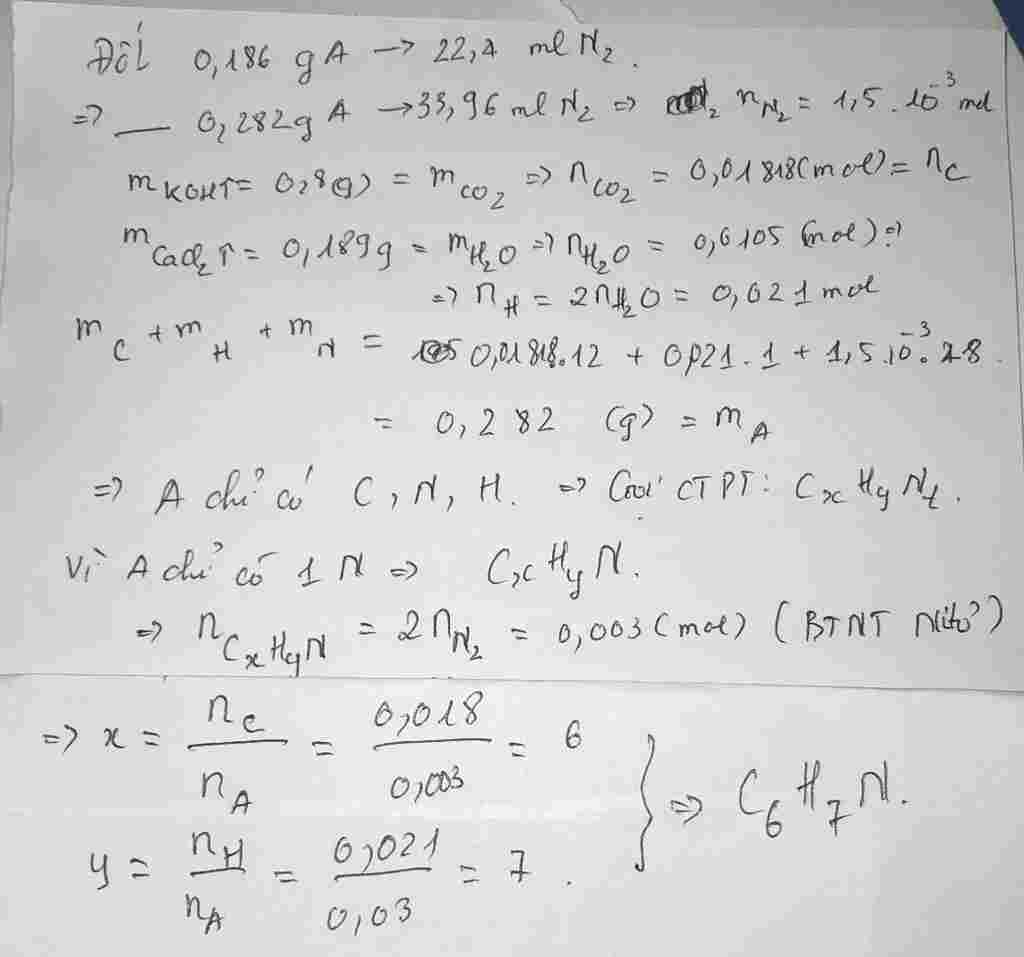 Đốt 0,186 g A -> 22,4 ml N₂.
=> — 0,282g A -> 33,96 ml N₂ => n_N₂ = 1,5 . 10⁻³ mol
m KOH↑ = 0,8(g) = m_CO₂ => n_CO₂ = 0,01818(mol) = n_C
m_CaCl₂↑ = 0,189g = m_H₂O => n_H₂O = 0,0105 (mol) =>
=> n_H = 2n_H₂O = 0,021 mol
m_C + m_H + m_N = 0,01818.12 + 0,021.1 + 1,5.10⁻³.28
= 0,282 (g) = m_A
=> A chỉ có C, N, H. => Gọi CTPT: CₓH_yN_t.
Vì A chỉ có 1 N => CₓH_yN.
=> n_CₓH_yN = 2n_N₂ = 0,003 (mol) (BTNT Nitơ)
=> x = n_C / n_A = 0,018 / 0,003 = 6
y = n_H / n_A = 0,021 / 0,03 = 7 . } => C₆H₇N.